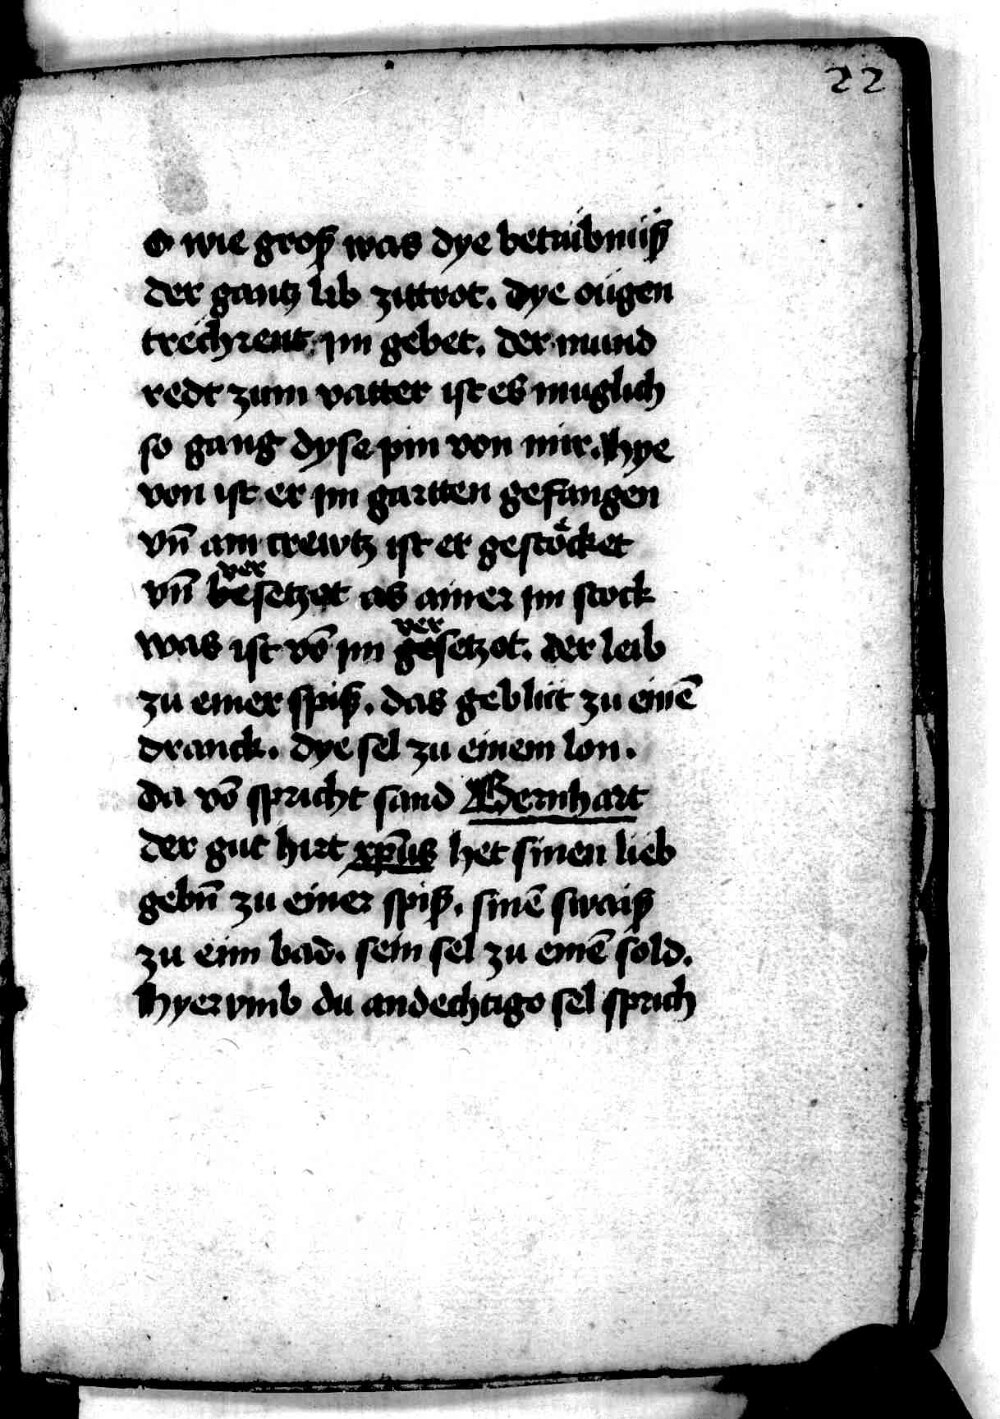 22
O wie groß was dye betruͤbnuͤß
der gantz lib zittrot. dye oügen
trechrent jm gebet. der mund
redt zum vatter ist es muglich
so gang dyse pin von mir. Hye
von ist er jm gartten gefangen
vn̄ am creẅtz ist er gestoͤcket
ver
vn̄ besetzet as ainer jm stock
ver
was ist vō jm gesetzot. der leib
zu einer spiß. das geblüt zu einē
dranck. dye sel zu einem lon.
da vō spricht sand Bernhart
der gut hirt xp̄us het sinen lieb
gebn̄ zu einer spiß. sinē swaiß
zu eim bad. sein sel zu einē sold.
Hyer vmb du andechtigo sel sprich